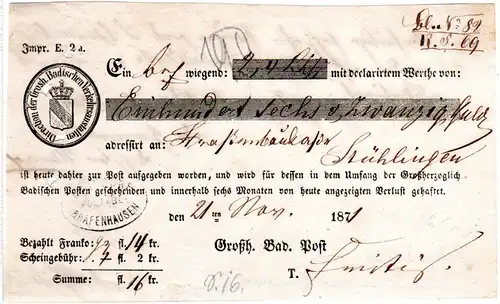 Bln. No 82
R. S. 69
Impr. E. 2 a.
Direction der Grosh. Badischen Verkehrsanstalten
Ein brf wiegend: 2,4 Lth mit declarirtem Werthe von:
Einhundert sechs u. zwanzig Guld
adressirt an: Straßenbaukasse
Stühlingen
ist heute dahier zur Post aufgegeben worden, und wird für dessen in dem Umfang der Großherzoglich
Badischen Posten geschehenden und innerhalb sechs Monaten von heute angezeigten Verlust gehaftet.
GRAFENHAUSEN
den 21ten Nov. 1871
Bezahlt Franko: fl. 14 kr.
Großh. Bad. Post
Scheingebühr: fl. 2 kr.
T.
Summe: fl. 16 kr.
S. 16.